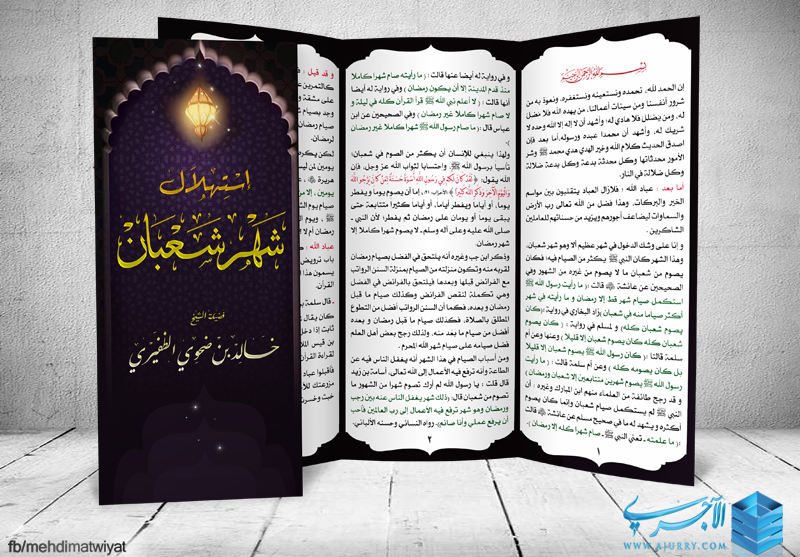 استهلال
شهر شعبان
فضيلة الشيخ
خالد بن ضحوي الظفيري
بسم الله الرحمن الرحيم
إن الحمد لله، نحمده ونستعينه ونستغفره، ونعوذ به من
شرور أنفسنا ومن سيئات أعمالنا، من يهده الله فلا مضل
له، ومن يضلل فلا هادي له؛ وأشهد أن لا إله إلا الله وحده لا
شريك له، وأشهد أن محمدا عبده ورسوله.أما بعد فإن
اصدق الحديث كلام الله وخير الهدي هدي محمد ﷺ وشر
الأمور محدثاتها وكل محدثة بدعة وكل بدعة ضلالة
وكل ضلالة في النار.
أما بعد : عباد الله ؛ فلازال العباد يتقلبون بين مواسم
الخير والبركات، وهذا فضل من الله تعالى رب الأرض
والسماوات ليضاعف أجورهم ويزيد من حسناتهم للعاملين
الشاكرين .
و إنا على وشك الدخول في شهر عظيم ألا وهو شهر شعبان،
وهذا الشهر كان النبي ﷺ يكثر من الصيام فيه؛ فكان
يصوم من شعبان ما لا يصوم من غيره من الشهور وفي
الصحيحين عن عائشة قالت : ( ما رأيت رسول الله ﷺ
استكمل صيام شهر قط إلا رمضان و ما رأيته في شهر
أكثر صياما منه في شعبان )زاد البخاري في رواية :(كان
يصوم شعبان كله) و لمسلم في رواية : ( كان يصوم
شعبان كله كان يصوم شعبان إلا قليلا ) وعنها وعن أم
سلمة قالتا :( كان رسول الله ﷺ يصوم شعبان إلا قليلا
بل كان يصومه كله ) وعن أم سلمة قالت : ( ما رأيت
رسول الله ﷺ يصوم شهرين متتابعين إلا شعبان ورمضان)
و قد رجح طائفة من العلماء منهم ابن المبارك وغيره : أن
النبي ﷺ لم يستكمل صيام شعبان وإنما كان يصوم
أكثره ويشهد له ما في صحيح مسلم عن عائشة قالت
:( ما علمته ـ تعني النبي ﷺ ـ صام شهرا كله إلا رمضان )،
١
و في رواية له أيضا عنها قالت : ( ما رأيته صام شهرا كاملا
منذ قدم المدينة إلا أن يكون رمضان ) وفي رواية له أيضا
أنها قالت : ( لا أعلم نبي الله ﷺ قرأ القرآن كله في ليلة و
لا صام شهرا كاملا غير رمضان ) وفي الصحيحين عن ابن
عباس قال :( ما صام رسول الله ﷺ شهرا كاملا غير رمضان
).
ولهذا ينبغي للإنسان أن يكثر من الصوم في شعبان؛
تأسيا برسول الله ﷺ، واحتسابا لثواب الله عز وجل، فإن
الله يقول: ﴿لَقَدْ كَانَ لَكُمْ فِي رَسُولِ اللَّهِ أُسْوَةٌ حَسَنَةٌ لِمَنْ كَانَ يَرْجُو اللَّهَ
وَالْيَوْمَ الْآخِرَ وَذَكَرَ اللَّهَ كَثِيرًا﴾ الأحزاب (٢١)، إما أن يصوم يوما ويفطر
يوما، أو أياما ويفطر أياما، أو أياما كثيرا متتابعة حتى
يبقى يوما أو يومان على رمضان ثم يفطر؛ لأن النبي ـ
صلى الله عليه وعلى آله وسلم ـ لا يصوم شهرا كاملا إلا
شهر رمضان.
وذكر ابن رجب وغيره أنه يلتحق في الفضل بصيام رمضان
لقربه منه وتكون منزلته من الصيام بمنزلة السنن الرواتب
مع الفرائض قبلها وبعدها فيلتحق بالفرائض في الفضل
وهي تكملة لنقص الفرائض وكذلك صيام ما قبل
رمضان و بعده، فكما أن السنن الرواتب أفضل من التطوع
المطلق بالصلاة، فكذلك صيام ما قبل رمضان و بعده
أفضل من صيام ما بعد منه، ولذلك رجح بعض أهل العلم
فضل صيامه على صيام شهر الله المحرم .
ومن أسباب الصيام في هذا الشهر أنه يغفل الناس فيه عن
الطاعة وأنه ترفع فيه الأعمال إلى الله تعالى، أسامة بن زيد
قال قلت : يا رسول الله لم أرك تصوم شهرا من الشهور ما
تصوم من شعبان قال: (ذلك شهر يغفل الناس عنه بين رجب
ورمضان وهو شهر ترفع فيه الأعمال إلى رب العالمين فأحب
أن يرفع عملي وأنا صائم). رواه النسائي وحسنه الألباني.
٢
و قد قيل :
كالتمرين ع
على مشقة و
وجد بصيام ش
صيام رمضان
لرمضان.
لكن يكره
يومين لمن ليس
هريرة ، عن
يومين، إلا من
صيام يوم الش
ﷺ، ويوم ال
رمضان أم لا
عباد الله :
باب ترويض
يسمون هذا ا
القرآن.
ـ قال سلمة ب
كان يقال ش
ثابت إذا دخل
بن قيس الملا
لقراءة القرآن
فأقبلوا عباد
مزرعتك للآ
خبت وخسرت
fb/mehdimatwiyat
الآجري
WWW.AJURRY.COM